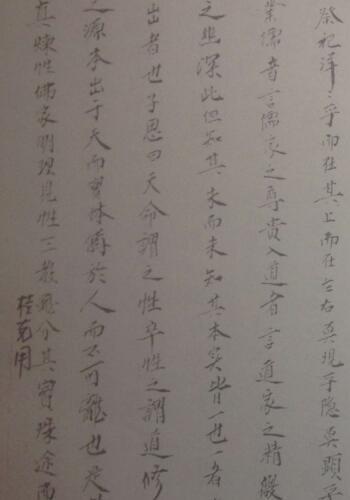 祭祀洋々乎而在其上而在左右莫現乎隐莫顕乎
業儒者言儒家之尊贵入道者言道家之精
之幽深此但知其末而未知其本实皆一也一者
出者也子思曰天命謂之性率性之謂道修
之源本出于天而實体備於人而不可離也是
真煉性佛家明理見性三教雖分其實殊途而
桂克用